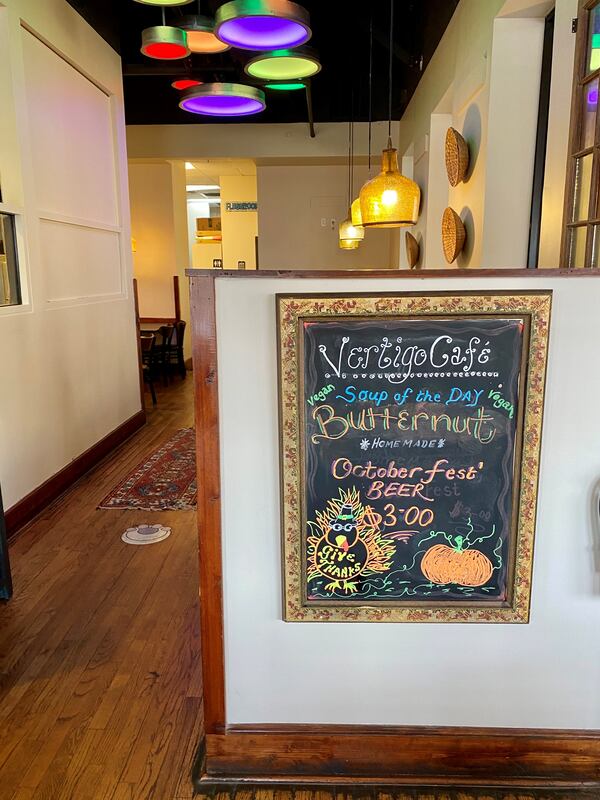 Vertigo Café
Vegan Soup of the DAY Vegan
Butternut
HOMEMADE
October fest'
BEER
$3.00
GIVE
THANKS